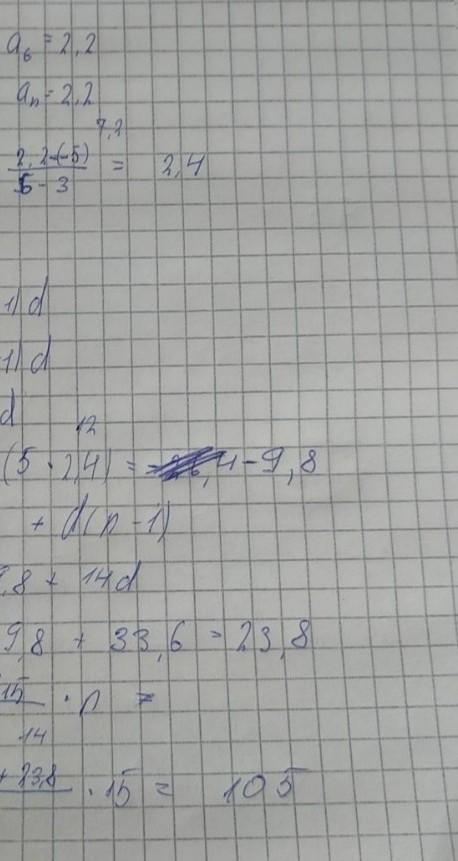 a₆ = 2,2
aₙ = 2,2
7,2
2,2-(-5)
6 - 3
= 2,4
1) d
1) d
d
12
(5 · 2,4) = -9,8
+ d(n-1)
,8 + 14d
9,8 + 33,6 = 23,8
15 · n =
14
+ 23,8 · 15 = 105